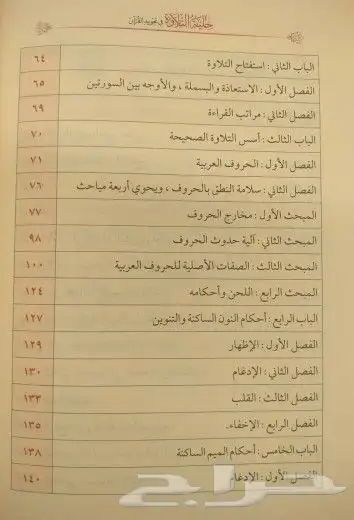 حلية التلاوة في تجويد القرآن
الباب الثاني : استفتاح التلاوة ٦٤
الفصل الأول : الاستعاذة والبسملة ، والأوجه بين السورتين ٦٥
الفصل الثاني : مراتب القراءة ٦٩
الباب الثالث : أسس التلاوة الصحيحة ٧٠
الفصل الأول : الحروف العربية ٧١
الفصل الثاني : سلامة النطق بالحروف ، ويحوي أربعة مباحث ٧٦
المبحث الأول : مخارج الحروف ٧٧
المبحث الثاني : آلية حدوث الحروف ٩٨
المبحث الثالث : الصفات الأصلية للحروف العربية ١٠٠
المبحث الرابع : اللحن وأحكامه ١٢٤
الباب الرابع : أحكام النون الساكنة والتنوين ١٢٧
الفصل الأول : الإظهار ١٢٩
الفصل الثاني : الإدغام ١٣٠
الفصل الثالث : القلب ١٣٣
الفصل الرابع : الإخفاء. ١٣٥
الباب الخامس : أحكام الميم الساكنة ١٣٨
الفصل الأول : الإدغام ١٤٠
حراج